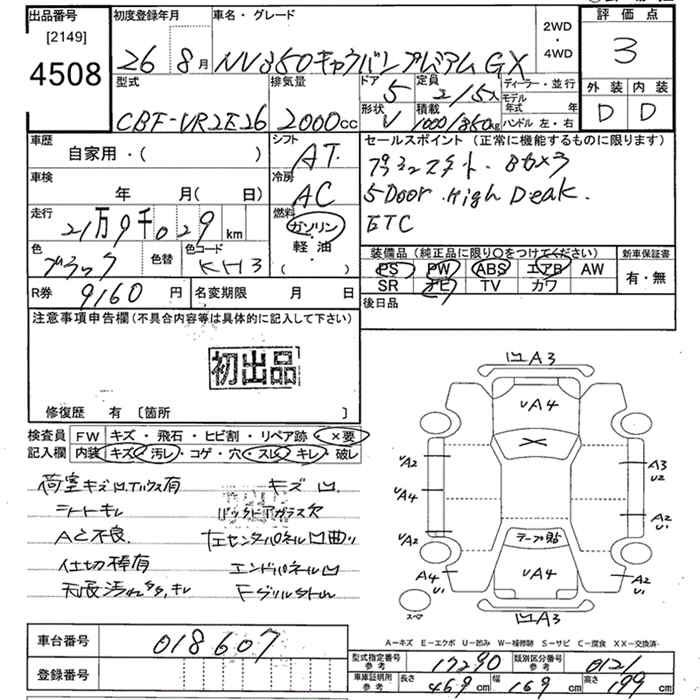 出品番号
[2149]
4508
初度登録年月 車名・グレード
26 8月 NV350キャラバン プレミアム GX
2WD
・
4WD
評価点
3
外装 内装
D D
型式 排気量 ドア 定員 ディーラー・並行
CBF-VR2E26 2000cc 5 2/5人
モデル年式 年
形状 積載 ハンドル 左・右
V 1000/850kg
車歴 シフト
自家用・( ) AT
車検 冷房
年 月( 日) AC
走行 燃料
21万9千029 km ガソリン
軽油
( )
色 色替 色コード
ブラック KH3
R券 9160 円 名変期限 月 日
セールスポイント(正常に機能するものに限ります)
5Door. High Deak.
ETC
装備品(純正品に限り○をつけてください) 新車保証書
PS PW ABS エアB AW 有・無
SR ナビ TV カワ
後日品
注意事項申告欄(不具合内容等は具体的に記入して下さい)
初出品
修復歴 有 〔箇所 〕
検査員 FW キズ・飛石・ヒビ割・リペア跡・×要
記入欄 内装 キズ・汚レ・コゲ・穴・スレ・キレ・破レ
シートキレ
A/C不良
仕切棒有
キズ 凹
バックドアガラス欠
左センターパネル凹曲り
エンドパネル凹
凹A3
UA4
UA2
UA4
UA2
A4
U1
A3
U2
A2
U1
A2
U1
テープ貼
UA4
凹A3
スペア
A-キズ E-エクボ U-凹み W-補修跡 S-サビ C-腐食 XX-交換済
車台番号 018607
登録番号
型式指定番号 参考 17290 類別区分番号 参考 0121
車庫証明用 参考 長さ 469 cm 幅 169 cm 高さ 199 cm